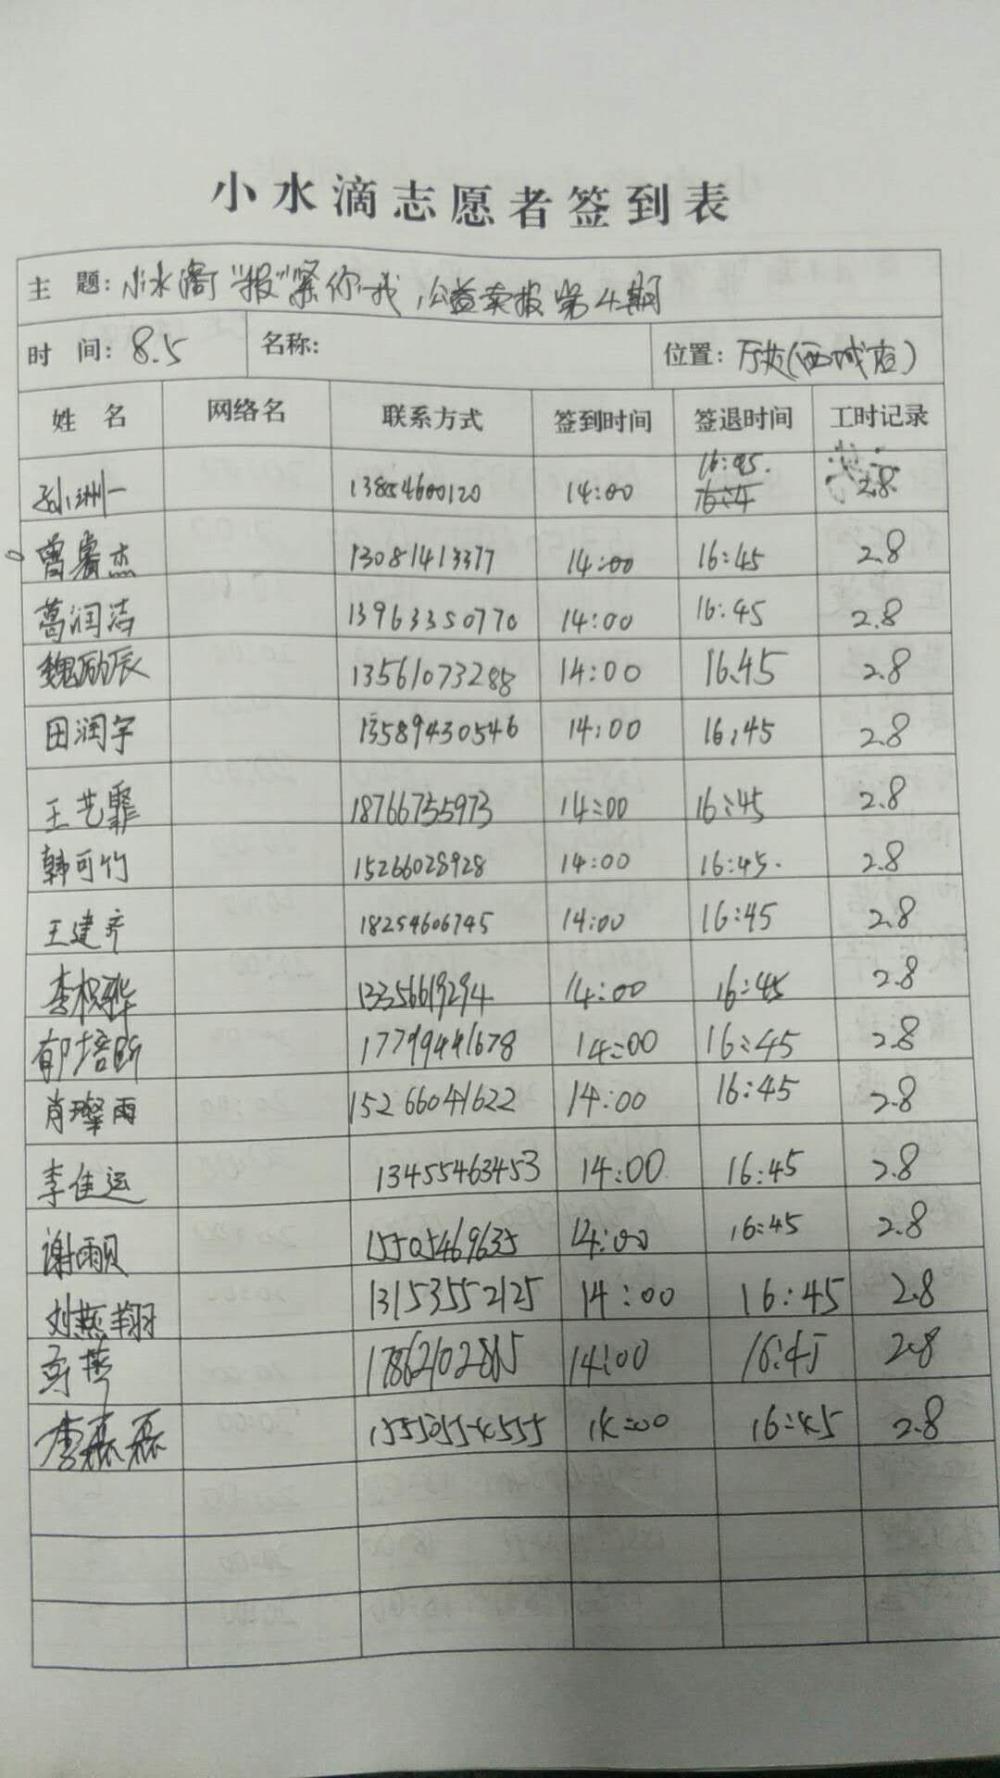 小水滴志愿者签到表
主 题: 小水滴"报"紧你我,公益卖报第4期
时 间: 8.5 名称: 位置: 万达(西城店)
姓 名 网络名 联系方式 签到时间 签退时间 工时记录
孙洲一 13854600120 14:00 16:45. 2.8
曾睿杰 13081413377 14:00 16:45 2.8
葛润洁 13963350770 14:00 16:45 2.8
魏励辰 13561073288 14:00 16.45 2.8
田润宇 13589430546 14:00 16:45 2.8
王艺霏 18766755973 14:00 16:45 2.8
韩可竹 15266028928 14:00 16:45. 2.8
王建齐 18254606745 14:00 16:45 2.8
李 13356619294 14:00 16:45 2.8
郁培昕 17799441678 14:00 16:45 2.8
肖璨雨 15266041622 14:00 16:45 2.8
李佳运 13455463453 14:00 16:45 2.8
谢雨贝 15505469635 14:00 16:45 2.8
刘燕翔 13153552125 14:00 16:45 2.8
14:00 16:45 2.8
李磊磊 14:00 16:45 2.8